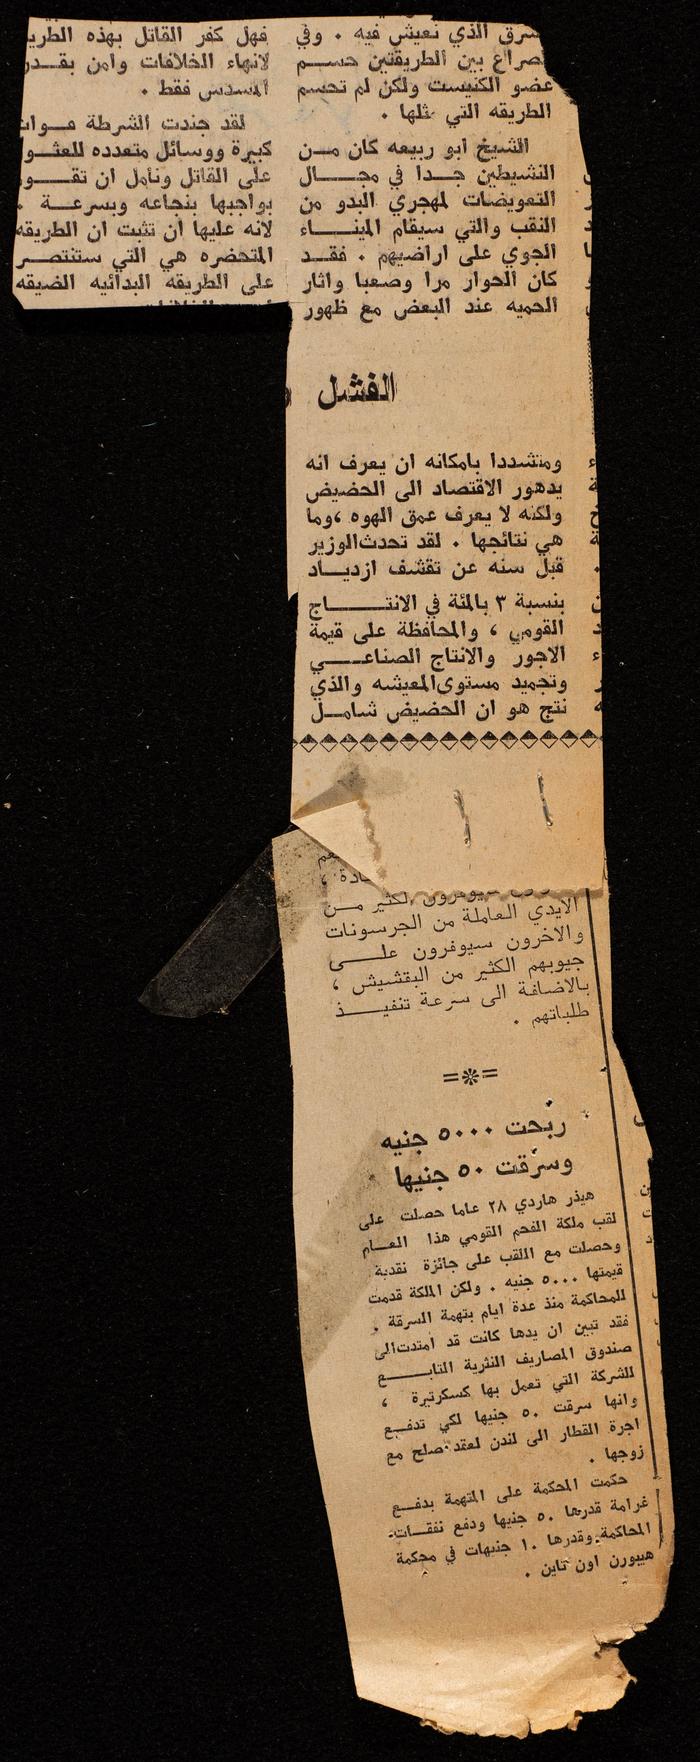 الشرق الذي نعيش فيه . وفي
صراع بين الطريقتين حسم
عضو الكنيست ولكن لم تحسم
الطريقه التي مثلها .
الشيخ ابو ربيعه كان من
النشيطين جدا في مجال
التعويضات لمهجري البدو من
النقب والتي سيقام الميناء
الجوي على اراضيهم . فقد
كان الحوار مرا وصعبا واثار
الحميه عند البعض مع ظهور
فهل كفر القاتل بهذه
لانهاء الخلافات وامن بقدر
المسدس فقط .
لقد جندت الشرطة
كبيرة ووسائل متعدده
على القاتل ونامل ان
بواجبها بنجاعه وبسرعة .
لانه عليها ان تثبت ان الطريقه
المتحضره هي التي ستنتصر
على الطريقه البدائيه الضيقه
الفشل
ومتشددا بامكانه ان يعرف انه
يدهور الاقتصاد الى الحضيض
ولكنه لا يعرف عمق الهوه ،وما
هي نتائجها . لقد تحدث الوزير
قبل سنه عن تقشف ازدياد
بنسبة ٣ بالمئة في الانتاج
القومي ، والمحافظة على قيمة
الاجور والانتاج الصناعي
وتجميد مستوى المعيشه والذي
نتج هو ان الحضيض شامل
سيوفرون الكثير من
الايدي العاملة من الجرسونات
والاخرون سيوفرون على
جيوبهم الكثير من البقشيش ،
بالاضافة الى سرعة تنفيذ
طلباتهم .
=*=
ربحت ٥٠٠٠ جنيه
وسرقت ٥٠ جنيها
هيذر هاردي ٢٨ عاما حصلت على
لقب ملكة الفحم القومي هذا العام
وحصلت مع اللقب على جائزة نقدية
قيمتها ٥٠٠٠ جنيه . ولكن الملكة قدمت
للمحاكمة منذ عدة ايام بتهمة السرقة .
فقد تبين ان يدها كانت قد امتدت الى
صندوق المصاريف النثرية التابع
للشركة التي تعمل بها كسكرتيرة ،
وانها سرقت ٥٠ جنيها لكي تدفع
اجرة القطار الى لندن لعقد صلح مع
زوجها .
حكمت المحكمة على المتهمة بدفع
غرامة قدرها ٥٠ جنيها ودفع نفقات
المحاكمة وقدرها ١٠ جنيهات في محكمة
هيبورن اون تاين .